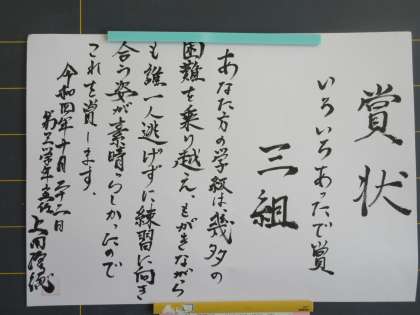 賞状
いろいろあったで賞
三組
あなた方の学級は幾多の
困難を乗り越え、もがきながら
も誰一人逃げずに練習に向き
合う姿が素晴らしかったので
これを賞します。
令和四年十月二十一日
上田